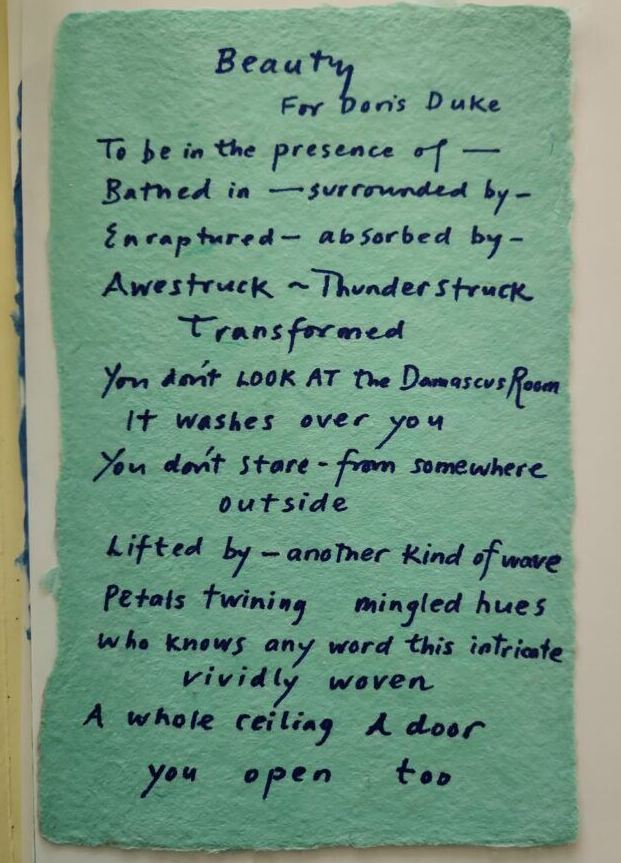 Beauty
For Doris Duke
To be in the presence of —
Bathed in — surrounded by –
Enraptured – absorbed by –
Awestruck ~ Thunderstruck
Transformed
You don't LOOK AT the Damascus Room
It washes over you
You don't stare - from somewhere
outside
Lifted by – another kind of wave
Petals twining mingled hues
who knows any word this intricate
vividly woven
A whole ceiling A door
you open too